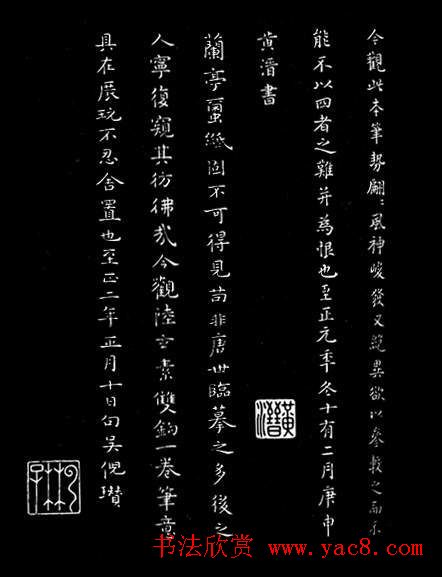 今觀此本筆勢翩〻風神峻發又絶異欲以參較之而不
能不以四者之難并為恨也至正元年冬十有二月庚申
黃溍書
黃溍
蘭亭蠒紙固不可得見苟非唐世臨摹之多後之
人寧復窺其彷彿哉今觀陸玄素雙鈎一卷筆意
具在展玩不忍舍置也至正二年正月十日句吳倪瓚
书法欣赏 www.yac8.com